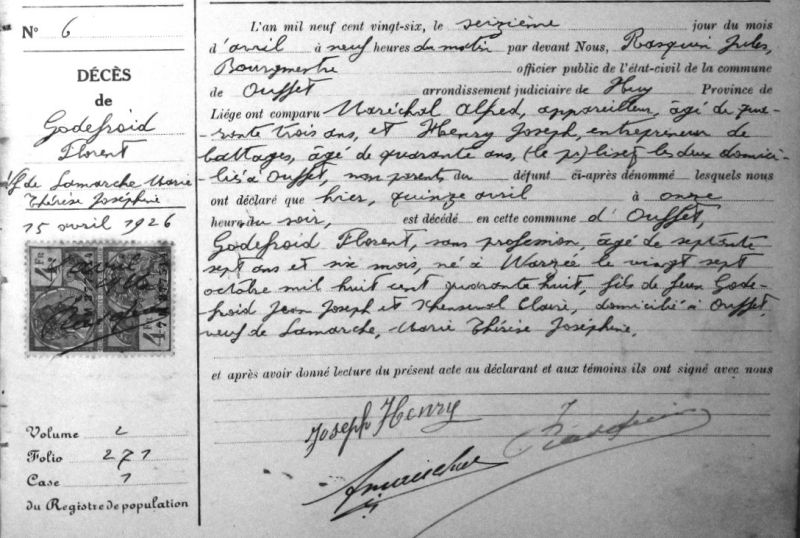 N° 6
DÉCÈS
de
Godefroid
Florent
vf de Lamarche Marie
Thérèse Joséphine
15 avril 1926
1 Fr
1 Fr
Volume 2
Folio 271
Case 1
du Registre de population
L'an mil neuf cent vingt-six, le seizième jour du mois
d'avril à neuf heures du matin par devant Nous, Rasquin Jules,
Bourgmestre officier public de l'état-civil de la commune
de Ouffet arrondissement judiciaire de Huy Province de
Liége ont comparu Maréchal Alfred, appareilleur, âgé de qua-
-rante trois ans, et Henry Joseph, entrepreneur de
battages, âgé de quarante ans, (le p) lisez les deux domici-
-liés à Ouffet, non parents du défunt ci-après dénommé lesquels nous
ont déclaré que hier, quinze avril à onze
heures du soir, est décédé en cette commune d'Ouffet,
Godefroid Florent, sans profession, âgé de septante
sept ans et six mois, né à Warzée le vingt sept
octobre mil huit cent quarante huit, fils de feux Gode-
froid Jean Joseph et Claire, domicilié à Ouffet,
veuf de Lamarche, Marie Thérèse Joséphine.
et après avoir donné lecture du présent acte au déclarant et aux témoins ils ont signé avec nous
Joseph Henry